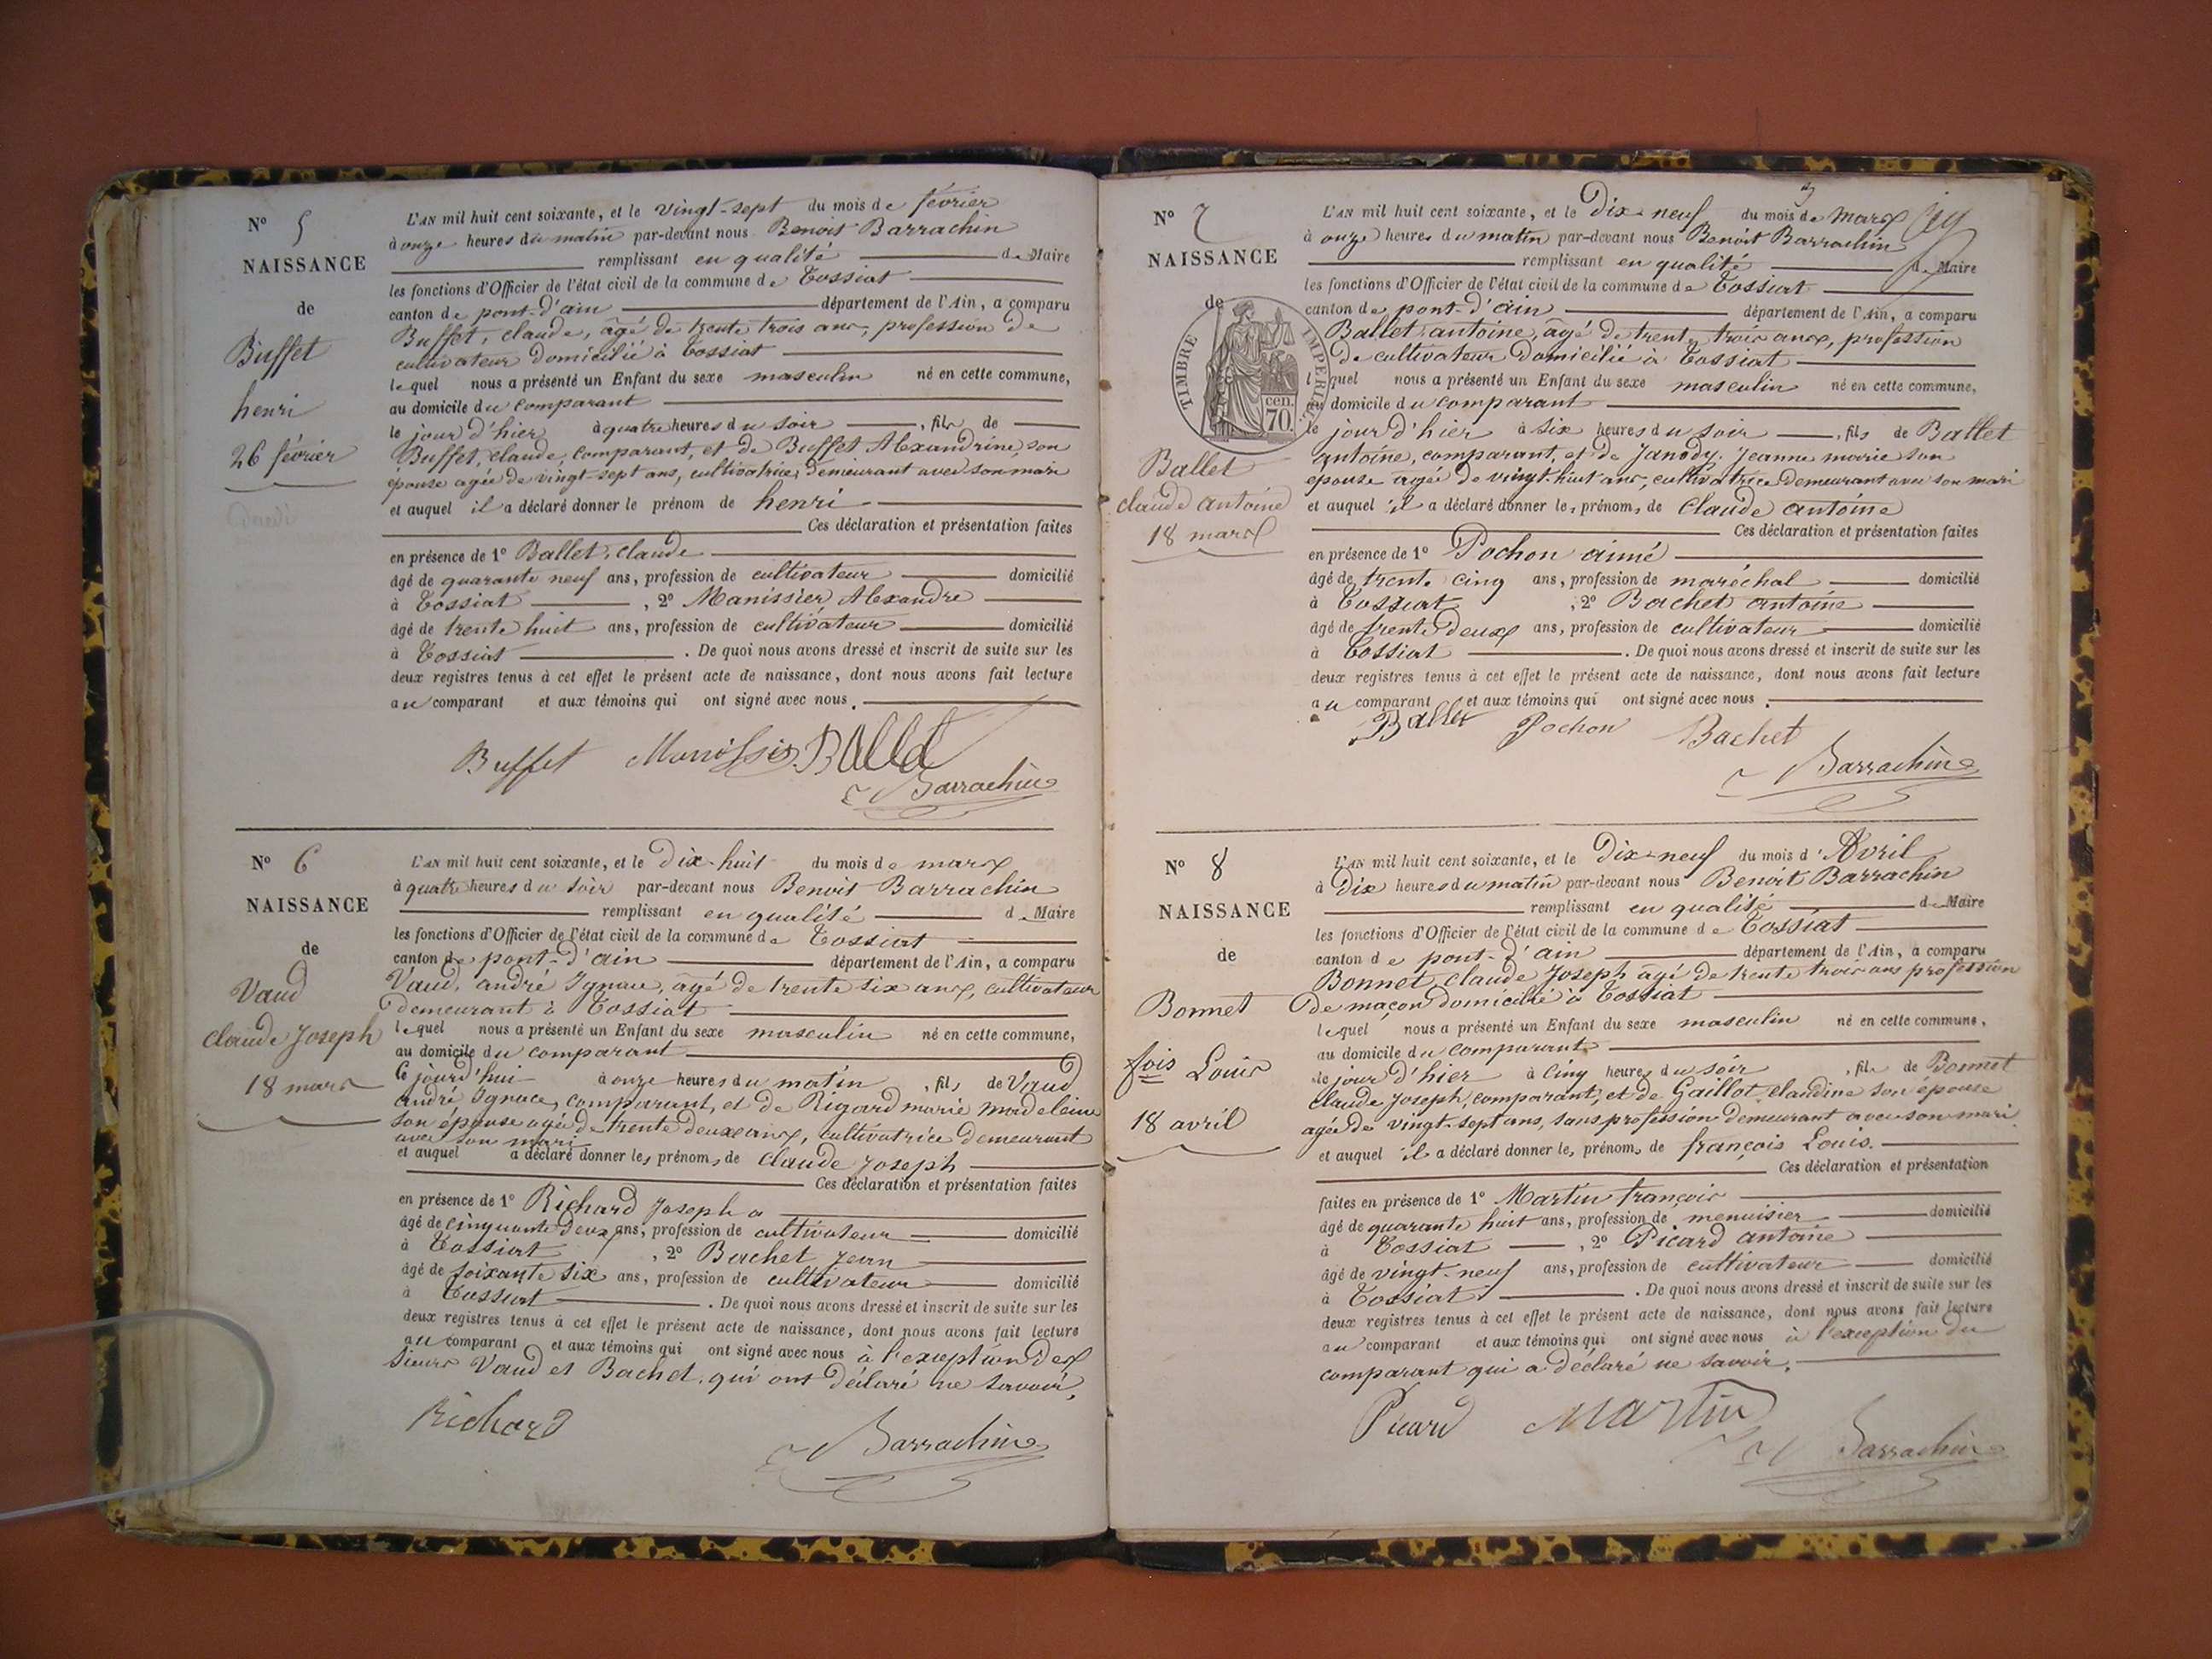 N° 5
NAISSANCE
de
Buffet
henri
26 février
L'AN mil huit cent soixante, et le vingt-sept du mois de février
à onze heures du matin par-devant nous Benoit Barrachin
remplissant en qualité de Maire
les fonctions d'Officier de l'état civil de la commune de Tossiat
canton de pont-d'ain département de l'Ain, a comparu
Buffet, claude, âgé de trente trois ans, profession de
cultivateur domicilié à Tossiat
lequel nous a présenté un Enfant du sexe masculin né en cette commune,
au domicile du comparant
le jour d'hier à quatre heures du soir, fils de
Buffet, claude, comparant, et de Buffet Alexandrine, son
épouse agée de vingt-sept ans, cultivatrice, demeurant avec son mari
et auquel il a déclaré donner le prénom de henri
Ces déclaration et présentation faites
en présence de 1° Ballet, claude
âgé de quarante neuf ans, profession de cultivateur domicilié
à Tossiat, 2° Manissier Alexandre
âgé de trente huit ans, profession de cultivateur domicilié
à Tossiat. De quoi nous avons dressé et inscrit de suite sur les
deux registres tenus à cet effet le présent acte de naissance, dont nous avons fait lecture
au comparant et aux témoins qui ont signé avec nous.
Buffet Ballet
Barrachin
N° 6
NAISSANCE
de
Vaud
claude Joseph
18 mars
L'AN mil huit cent soixante, et le Dix-huit du mois de mars
à quatre heures du soir par-devant nous Benoit Barrachin
remplissant en qualité de Maire
les fonctions d'Officier de l'état civil de la commune de Tossiat
canton de pont-d'ain département de l'Ain, a comparu
Vaud, andré Ignace, âgé de trente six ans, cultivateur
demeurant à Tossiat
lequel nous a présenté un Enfant du sexe masculin né en cette commune,
au domicile du comparant
ce jourd'hui à onze heures du matin, fils de Vaud
andré Ignace, comparant, et de Rigard marie madeleine
son épouse agée de trente deux ans, cultivatrice demeurant
avec son mari
et auquel a déclaré donner les prénoms de claude Joseph
Ces déclaration et présentation faites
en présence de 1° Richard Joseph
âgé de cinquante deux ans, profession de cultivateur domicilié
à Tossiat, 2° Bachet Jean
âgé de soixante six ans, profession de cultivateur domicilié
à Tossiat. De quoi nous avons dressé et inscrit de suite sur les
deux registres tenus à cet effet le présent acte de naissance, dont nous avons fait lecture
au comparant et aux témoins qui ont signé avec nous à l'exception des
sieurs Vaud et Bachet, qui ont déclaré ne savoir.
Richard
Barrachin
N° 7
NAISSANCE
de
TIMBRE IMPERIAL
cen.
70.
Ballet
claude antoine
18 mars
3
L'AN mil huit cent soixante, et le Dix-neuf du mois de mars
à onze heures du matin par-devant nous Benoit Barrachin
remplissant en qualité de Maire
les fonctions d'Officier de l'état civil de la commune de Tossiat
canton de pont-d'ain département de l'Ain, a comparu
Ballet antoine, âgé de trente trois ans, profession
de cultivateur domicilié à Tossiat
lequel nous a présenté un Enfant du sexe masculin né en cette commune,
au domicile du comparant
le jour d'hier à six heures du soir, fils de Ballet
antoine, comparant, et de Janody Jeanne marie son
épouse agée de vingt-huit ans, cultivatrice demeurant avec son mari
et auquel il a déclaré donner les prénoms de claude antoine
Ces déclaration et présentation faites
en présence de 1° Pochon aimé
âgé de trente cinq ans, profession de maréchal domicilié
à Tossiat, 2° Bachet antoine
âgé de trente deux ans, profession de cultivateur domicilié
à Tossiat. De quoi nous avons dressé et inscrit de suite sur les
deux registres tenus à cet effet le présent acte de naissance, dont nous avons fait lecture
au comparant et aux témoins qui ont signé avec nous.
Ballet Pochon Bachet
Barrachin
N° 8
NAISSANCE
de
Bonnet
fois Louis
18 avril
L'AN mil huit cent soixante, et le Dix-neuf du mois d'Avril
à Dix heures du matin par-devant nous Benoit Barrachin
remplissant en qualité de Maire
les fonctions d'Officier de l'état civil de la commune de Tossiat
canton de pont-d'ain département de l'Ain, a comparu
Bonnet, claude Joseph âgé de trente trois ans profession
de maçon domicilié à Tossiat
lequel nous a présenté un Enfant du sexe masculin né en cette commune,
au domicile du comparant
le jour d'hier à cinq heures du soir, fils de Bonnet
claude Joseph, comparant, et de Gaillot claudine son épouse
agée de vingt-sept ans, sans profession demeurant avec son mari
et auquel il a déclaré donner les prénoms de françois Louis.
Ces déclaration et présentation
faites en présence de 1° Martin françois
âgé de quarante huit ans, profession de menuisier domicilié
à Tossiat, 2° Picard antoine
âgé de vingt-neuf ans, profession de cultivateur domicilié
à Tossiat. De quoi nous avons dressé et inscrit de suite sur les
deux registres tenus à cet effet le présent acte de naissance, dont nous avons fait lecture
au comparant et aux témoins qui ont signé avec nous à l'exception du
comparant qui a déclaré ne savoir.
Picard Martin
Barrachin